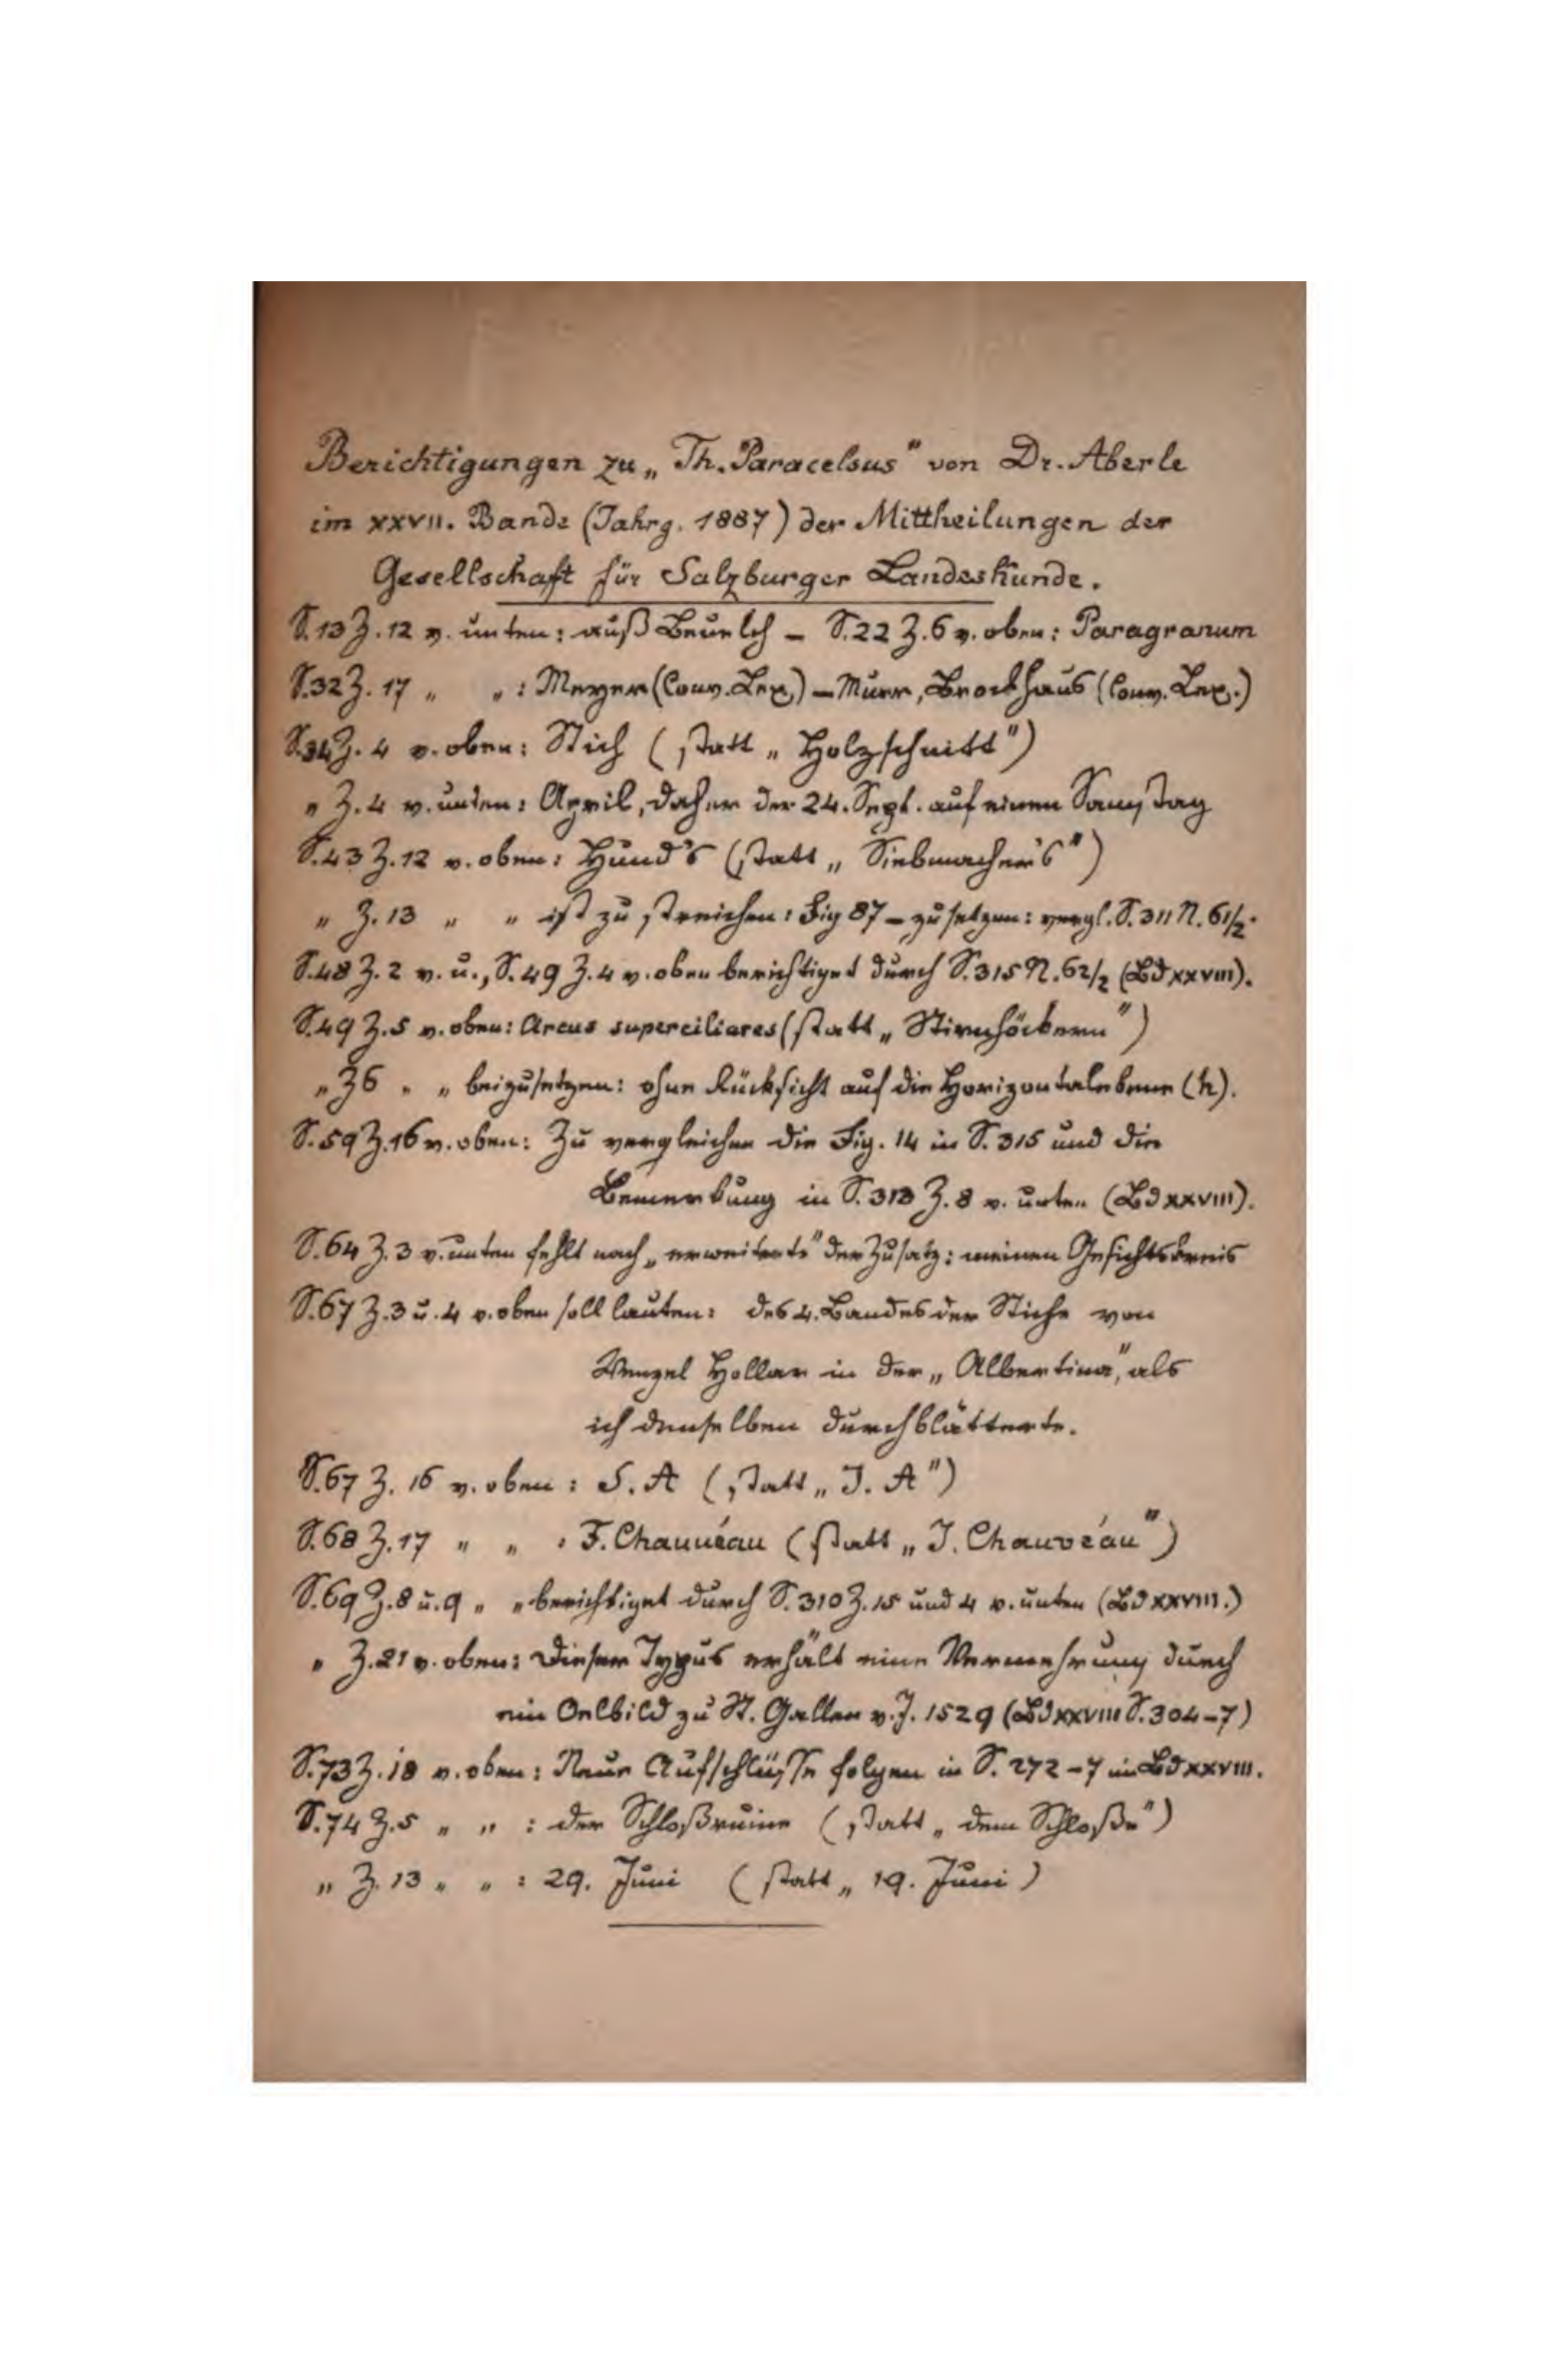 Berichtigungen zu „Th. Paracelsus" von Dr. Aberle
im XXVII. Bande (Jahrg. 1887) der Mittheilungen der
Gesellschaft für Salzburger Landeskunde.
S. 13 Z. 12 v. unten: auß – S. 22 Z. 6 v. oben: Paragranum
S. 32 Z. 17 „ „ : Meyer (Conv. Lex.) – Murr, Brockhaus (Conv. Lex.)
S. 34 Z. 4 v. oben: Stich (statt „Holzschnitt")
„ Z. 4 v. unten: April, daher der 24. Sept. auf einen Samstag
S. 43 Z. 12 v. oben: Hund's (statt „Siebmacher's")
„ Z. 13 „ „ ist zu streichen: Fig 87 – zu setzen: vergl. S. 311 N. 61/2.
S. 48 Z. 2 v. u., S. 49 Z. 4 v. oben berichtiget durch S. 315 N. 62/2 (Bd XXVIII).
S. 49 Z. 5 v. oben: Arcus superciliares (statt „Stirnhöckern")
„ Z 6 „ „ beizusetzen: ohne Rücksicht auf die Horizontalebene (h).
S. 59 Z. 16 v. oben: Zu vergleichen die Fig. 14 in S. 315 und die
Bemerkung in S. 313 Z. 8 v. unten (Bd XXVIII).
S. 64 Z. 3 v. unten fehlt nach „erweiterte" der Zusatz: meinen Gesichtskreis
S. 67 Z. 3 u. 4 v. oben soll lauten: des 4. Bandes der Stiche von
Wenzel Hollar in der „Albertina", als
ich denselben durchblätterte.
S. 67 Z. 16 v. oben: S. A (statt „J. A")
S. 68 Z. 17 „ „ : F. Chauvéau (statt „J. Chauvéau")
S. 69 Z. 8 u. 9 „ „ berichtiget durch S. 310 Z. 15 und 4 v. unten (Bd XXVIII.)
„ Z. 21 v. oben: Dieser Typus erhält eine Vermehrung durch
ein Oelbild zu St. Gallen v. J. 1529 (Bd XXVIII S. 304–7)
S. 73 Z. 18 v. oben: Neue Aufschlüsse folgen in S. 272–7 im Bd XXVIII.
S. 74 Z. 5 „ „ : der Schloßruine (statt „dem Schloße")
„ Z. 13 „ „ : 29. Juni (statt „19. Juni)